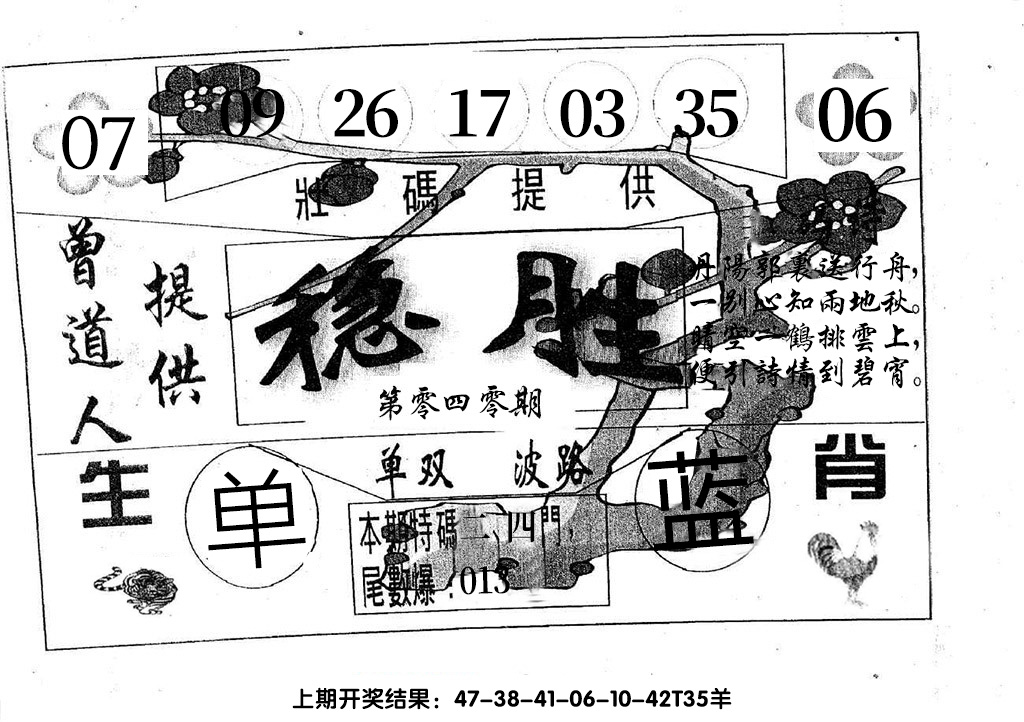 07 09 26 17 03 35 06
壯碼提供
曾道人
提供
穩胜
第零四零期
特
丹陽郭裏送行舟，
一別心知兩地秋。
晴空一鶴排雲上，
便引詩情到碧宵。
单双 波路
生
单
蓝
肖
本期特碼二、四門，
尾數爆：013
上期开奖结果：47-38-41-06-10-42T35羊